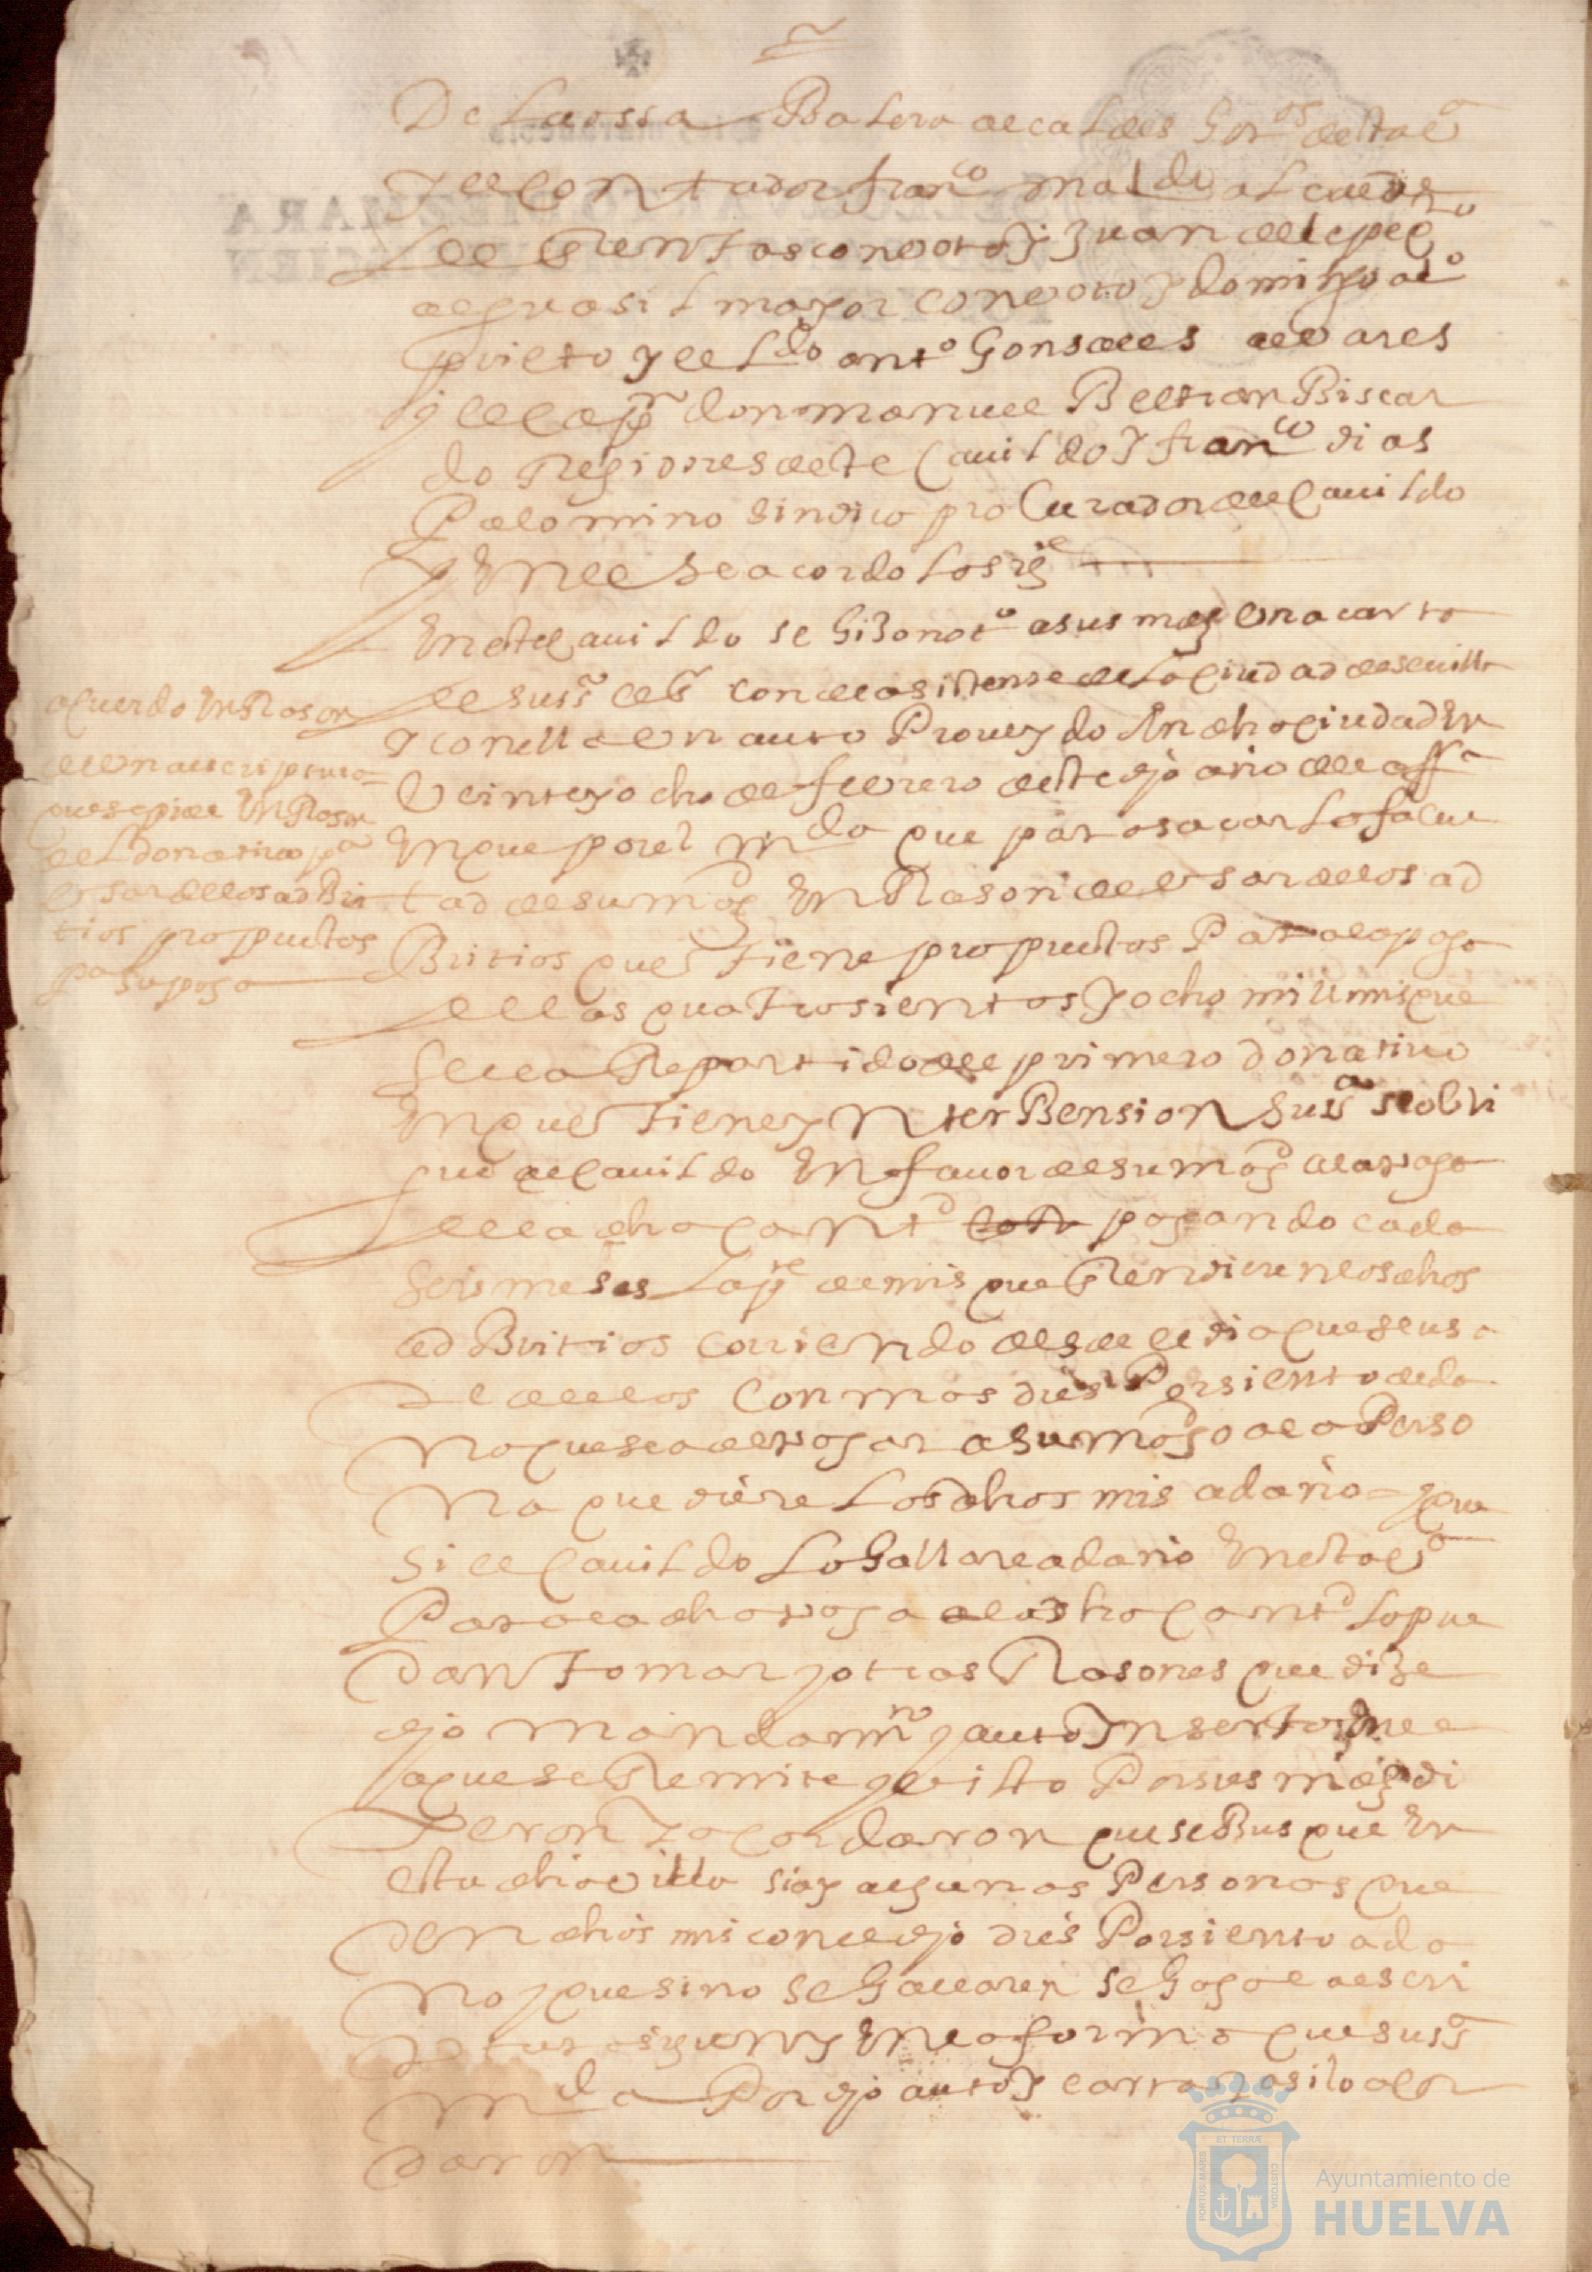 De la ossa Balero alcaldes hor^os desta v^a
y el contador fran^co mal^do alcaide
de Rentas con voto y Juan de lepe
alguasil mayor con voto y domingo al^o
prieto y el l^do ant^o Gonsales alvares
y el cap^n don manuel Beltran Biscar
do Regidores deste Cauildo y fran^co dias
Palomino sindico procurador del Cauildo
y En el se acordo lo sig^e
En este cauildo se hizo not^o a sus m^des una carta
de su s^a el s^r conde asistente de la ciudad de seuilla
y con ella un auto Proueydo En dha ciudad En
Veinte y ocho de febrero deste dho año
En que por el m^da que para sacar la facul
tad de su mag^d En Rason de usar de los ad
Britios que tiene propuestos Para el pago
de las quatrosientos y ocho mill mrs que
se le a Repartido del primero donatiuo
En que tiene ynterBension su s^a se obli
gue el cauildo En fauor de su mag^d a la paga
de la dha cant^d pagando cada
seis meses la p^te de mrs que Rendieren los dhos
adBritios corriendo desde el dia que se usa
re de ellos Con mas dies Por siento de da
ño que sea de pagar a su mag^d o a la Perso
na que diere los dhos mrs a daño = y que
si el cauildo lo hallare a daño En esta v^a
Para la dha paga de la dha cant^d lo pue
dan tomar y otras Rasones que dize
dho mandam^to y auto Inserto En el
a que se Remite y visto Por sus m^des di
xeron y acordaron que se Busque En
esta dha villa si ay algunas Personas que
den dhos mrs con el dho dies Por siento a da
ño y que si no se hallaren se haga la escri
ptura según y En la forma que su s^a
m^da Por dho auto y carta y asi lo acor
daron
acuerdo En Rason
de una escriptura
que se pide En Rason
del donatiuo p^a
usar de los adBri
tios propuestos
p^a su pago
Ayuntamiento de
HUELVA
PORTUS MARIS
ET TERRÆ
CUSTODIA